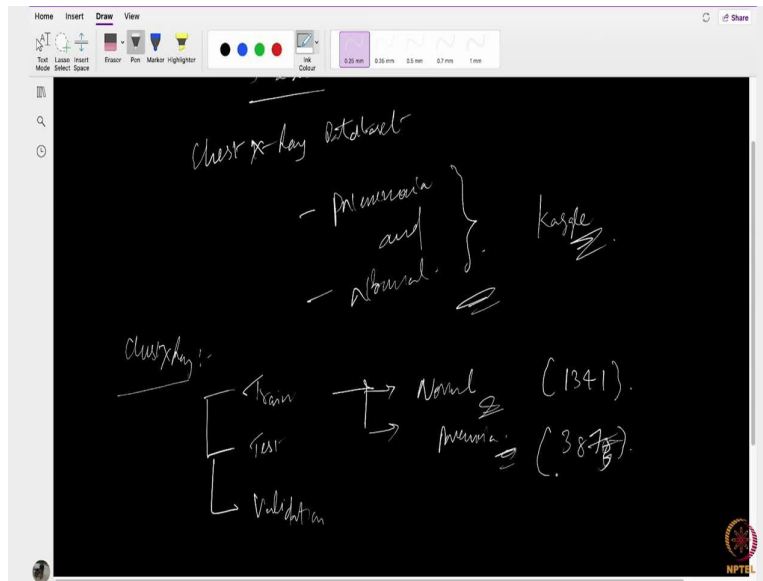 Home Insert Draw View
Share
Text Mode Lasso Select Insert Space Eraser Pen Marker Highlighter Ink Colour 0.25 mm 0.35 mm 0.5 mm 0.7 mm 1 mm
Chest X-Ray Dataset
- Pneumonia
and
- Normal.
Kaggle
Chest X Ray :-
Train → Normal (1341).
→ Pneumonia. (387
Test
Validation
NPTEL